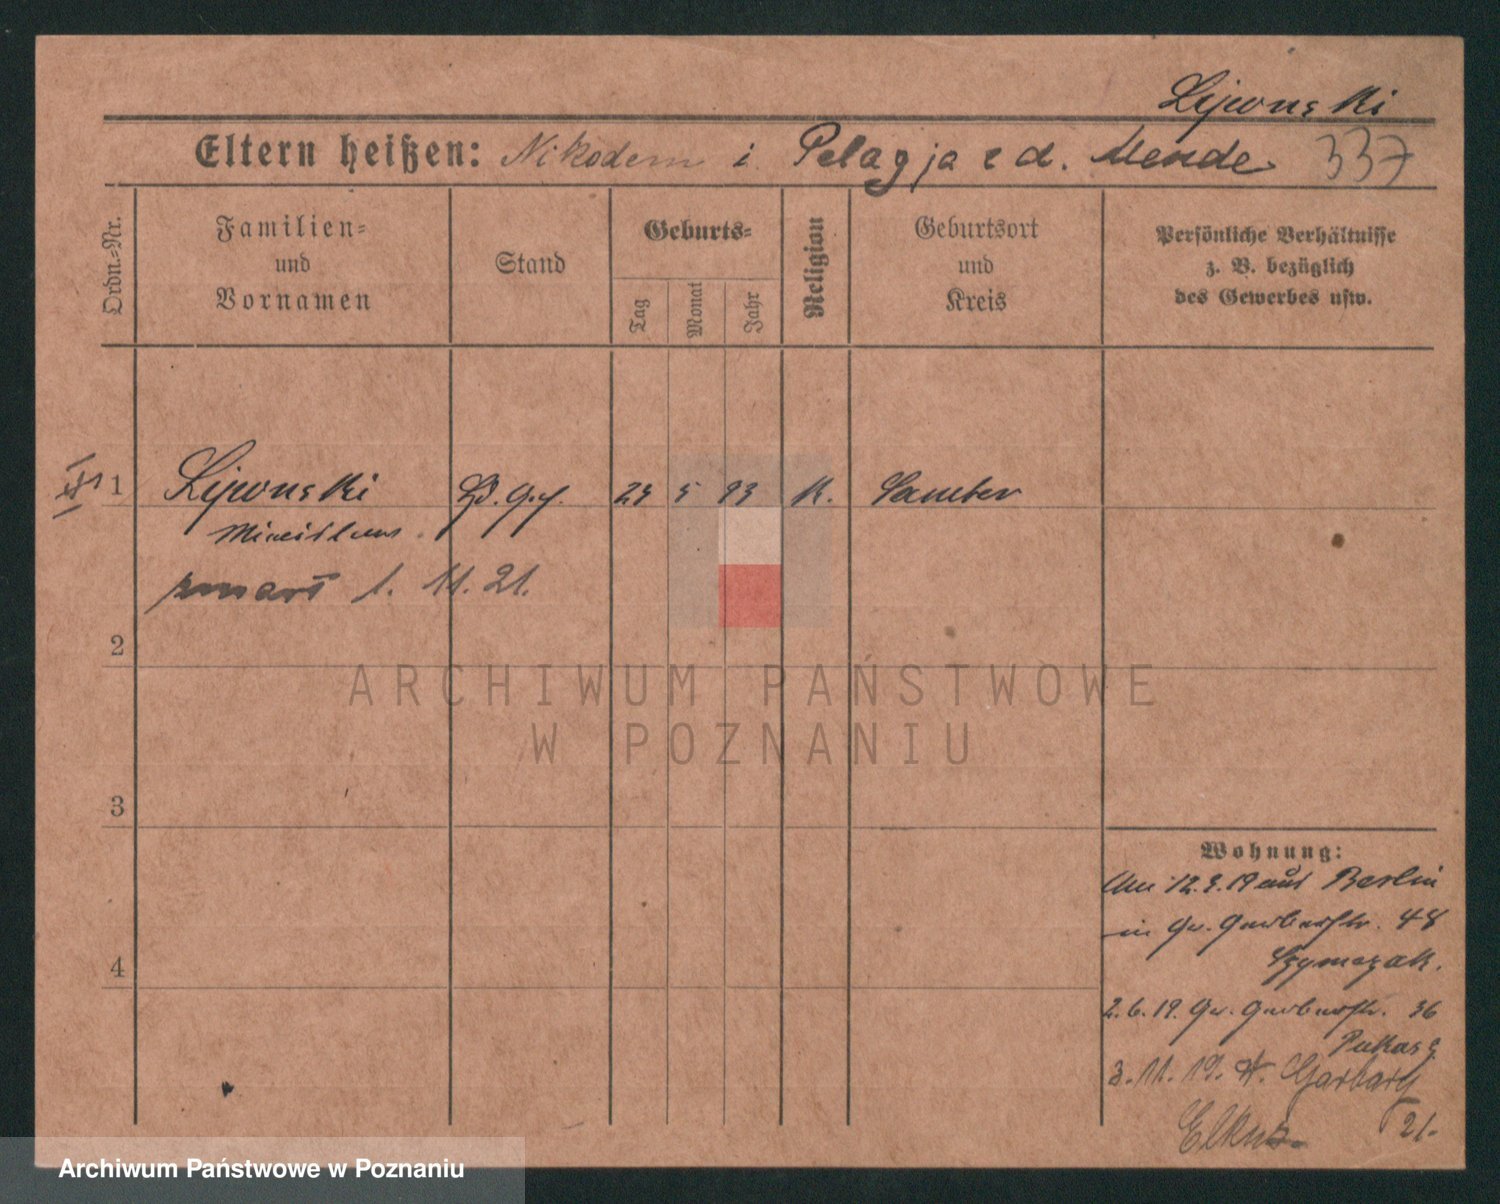 Lijewski
Eltern heißen: Nikodem i Pelagja z d. Mende 337
Ordn.-Nr.
Familien-
und
Vornamen
Stand
Geburts-
Tag
Monat
Jahr
Religion
Geburtsort
und
Kreis
Persönliche Verhältnisse
z. B. bezüglich
des Gewerbes usw.
1 5 93 K. Samter
zmarł 1. 11. 21.
2
3
4
Wohnung:
Am 12.3.19 aus Berlin
in Gr. Gerberstr. 48
Szymczak.
2.6.19. Gr. Gerberstr. 36
3.11.19. W. Garbary
Elkus 21.
ARCHIWUM PAŃSTWOWE
W POZNANIU
Archiwum Państwowe w Poznaniu